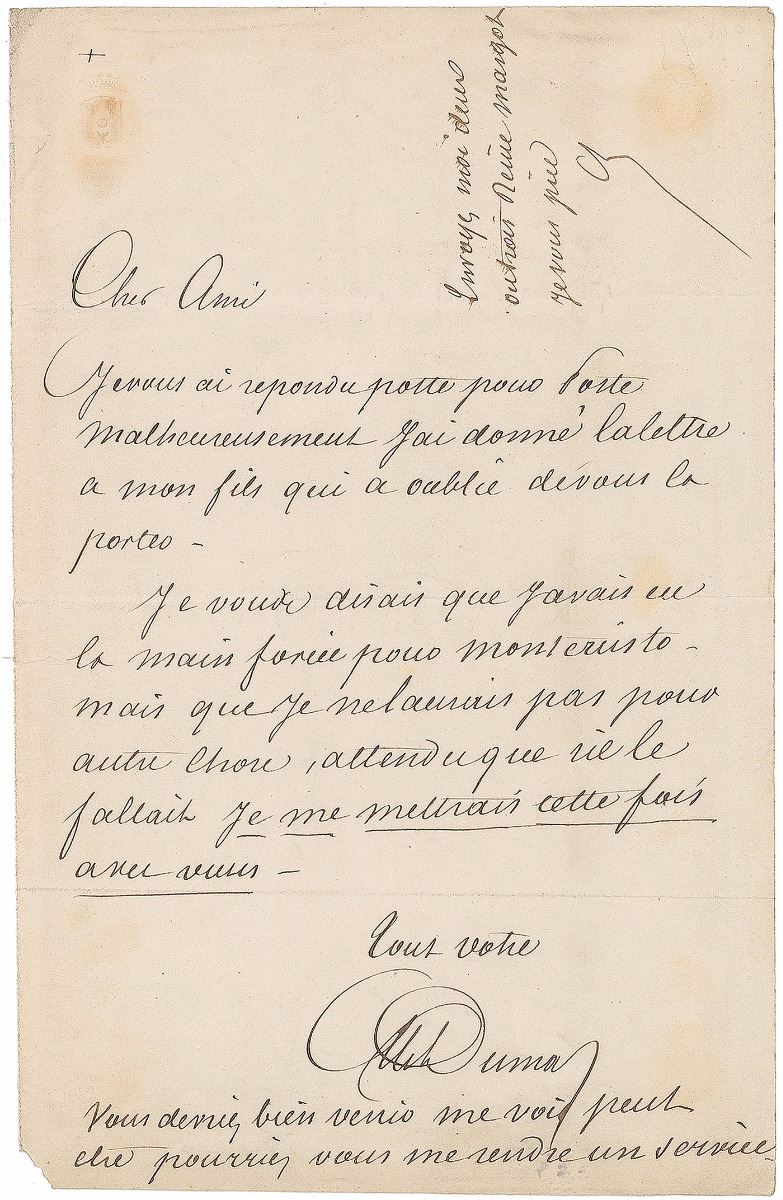 Envoyez moi deux
ou trois Reine margot
je vous prie
Cher Ami
Je vous ai repondu poste pour Poste
malheureusement J'ai donné la lettre
a mon fils qui a oublié de vous la
porter -
Je vous disais que J'avais eu
la main forcée pour montecristo -
mais que Je ne l'aurais pas pour
autre chose, attendu que s'il le
fallait Je me mettrais cette fois
avec vous -
Tout votre
Alex Dumas
Vous devriez bien venir me voir peut
etre pourriez vous me rendre un service.